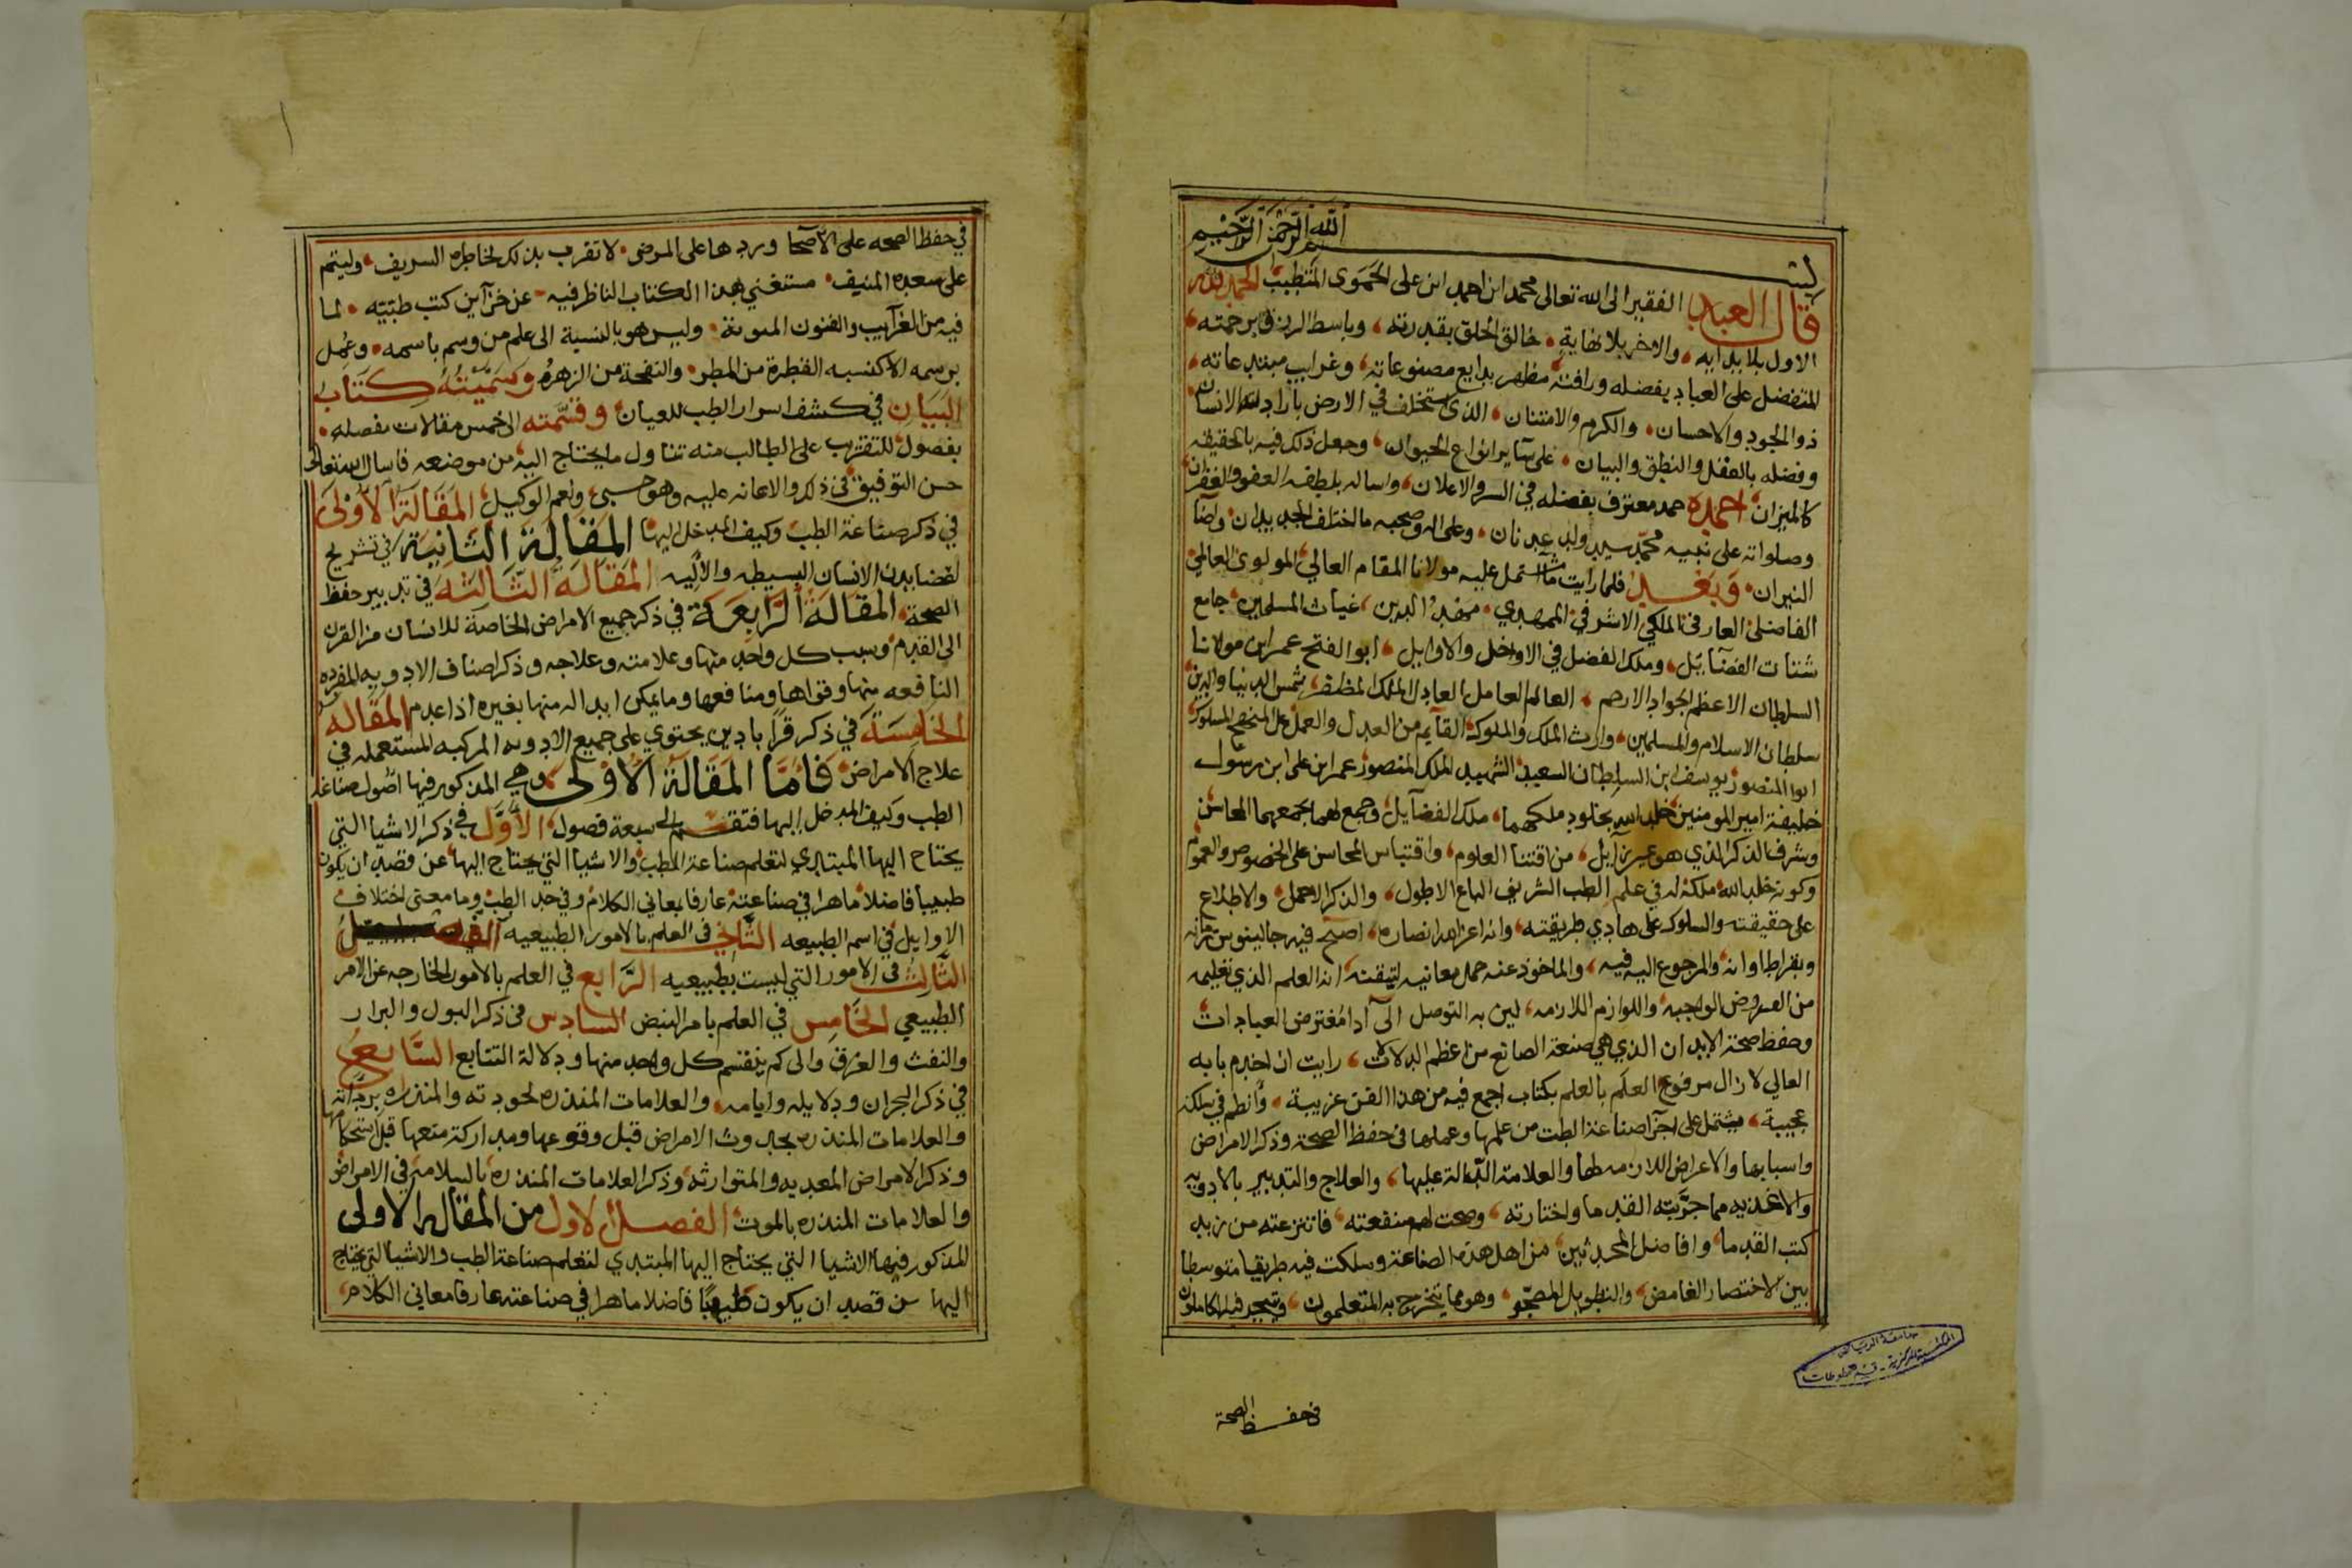 بسم الله الرحمن الرحيم
قال العبد الفقير الى الله تعالى محمد ابن احمد ابن على الحموى المتطبب الحمد لله
الاول بلا بدايه والاخر بلا نهاية خالق الخلق بقدرته وباسط الرزق برحمته
المتفضل على العباد بفضله ورافته مظهر بدايع مصنوعاته وغرايب مبتدعاته
ذو الجود والاحسان والكرم والامتنان الذى استخلف في الارض باراد الانسان
وفضله بالعقل والنطق والبيان على ساير انواع الحيوان وجعل ذلك فيه بالحقيقه
كالميزان احمده حمد معترف بفضله في السر والاعلان واساله بلطفه العفو والغفران
وصلواته على نبيه محمد سيد ولد عدنان وعلى اله وصحبه ما اختلف الجديدان واضآ
النيران وبعد فلما رايت ما اشتمل عليه مولانا المقام العالي المولوى العالمي
الفاضلى العارفى الملكي الاشرفي الممهدي ممهد الدين غياث المسلمين جامع
شتات الفضآيل وملك الفضل في الاواخر والاوايل ابو الفتح عمر ابن مولانا
السلطان الاعظم الجواد الارحم العالم العامل العادل الملك المظفر شمس الدنيا والدين
سلطان الاسلام والمسلمين وارث الملك والملوك القآيم من العدل والعمل على المنهج المسلوك
ابوا المنصور يوسف ابن السلطان السعيد الشهيد الملك المنصور عمر ابن على ابن رسول
خليفة امير المومنين خلد الله بخلود ملكهما ملك الفضآيل وجمع لهما بجمعهما المحاسن
وشرف الذكر الذي هو غير زآيل من اقتنا العلوم واقتباس المحاسن على الخصوص والعموم
وكونه خلد الله ملكه له في علم الطب الشريف الباع الاطول والذكر الاجمل والاطلاع
على حقيقته والسلوك على هادي طريقته وانه اعز الله انصاره اصبح فيه جالينوس زمانه
وبقراط اوانه والمرجوع اليه فيه والماخوذ عنه جمل معانيه لتيقنه انه العلم الذي تعليمه
من الفروض الواجبه واللوازم اللازمه لين به التوصل الى آدا مفترض العبادات
وحفظ صحة الابدان الذي هي صنعة الصانع من اعظم الدلالات رايت ان اخدم بابه
العالي لا زال مرفوع العلم بالعلم بكتاب اجمع فيه من هذا الفن غريبة وانظم في سلكه
عجيبة يشتمل على اجزآ صناعة الطب من علمها وعملها فى حفظ الصحة وذكر الامراض
واسبابها والاعراض اللازمه لها والعلامة الدالة عليها والعلاج والتدبير بالادويه
والاغذيه مما جربته القدما واختارته وصحت لهم منفعته فانتزعته من زبد
كتب القدما وافاضل المحدثين من اهل هذه الصناعة وسلكت فيه طريقا متوسطا
بين الاختصار الغامض والتطويل المضجر وهو مما يتخرج به المتعلمون ويتبحر فيه الكاملون
فى حفظ الصحة
جامعة الرياض
المكتبة المركزية - قسم المخطوطات
في حفظ الصحه على الاصحا وردها على المرضى لاتقرب بذلك لخاطره الشريف وليتم
على سعده المنيف مستغني بهذا الكتاب الناظر فيه عن خزآين كتب طبيه لما
فيه من الغرآيب والفنون وليس هو بالنسبة الى علم من وسم باسمه وعمل
برسمه الا كنسبه القطرة من المطر والنفحة من الزهره وسميته كتاب
البيان في كشف اسرار الطب للعيان وقسمته الى خمس مقالات مفصله
بفصول للتقريب على الطالب منه تناول ما يحتاج اليه من موضعه فاسال الله تعالى
حسن التوفيق في ذلك والاعانه عليه وهو حسبي ونعم الوكيل المقالة الاولى
في ذكر صناعة الطب وكيف المدخل اليها المقالة الثانية في تشريح
اعضا بدن الانسان البسيطه والآليه المقالة الثالثه في تدبير حفظ
الصحة المقالة الرابعة في ذكر جميع الامراض الخاصة للانسان من القرن
الى القدم وسبب كل واحد منها وعلامته وعلاجه وذكر اصناف الادويه المفرده
النافعه منها وقواها ومنافعها وما يمكن ابداله منها بغيره اذا عدم المقاله
الخامسة في ذكر قراباذين يحتوي على جميع الادويه المركبه المستعمله في
علاج الامراض فاما المقالة الاولى وهي المذكور فيها اصول صناعة
الطب وكيف المدخل اليها فتنقسم الى سبعة فصول الاول في ذكر الاشيا التي
يحتاج اليها المبتدي لتعلم صناعة الطب والاشيا التي يحتاج اليها من قصد ان يكون
طبيبا فاضلا ماهرا في صناعته عارفا بمعاني الكلام وفي حد الطب وما معنى اختلاف
الاوايل في اسم الطبيعه الثاني فى العلم بالامور الطبيعيه
الثالث فى الامور التي ليست بطبيعيه الرابع في العلم بالامور الخارجه عن الامر
الطبيعي الخامس في العلم بامر النبض السادس فى ذكر البول والبراز
والنفث والعرق والى كم ينقسم كل واحد منها ودلالة التتابع السابع
في ذكر البحران ودلايله وايامه والعلامات المنذره لجودته والمنذره بردآته
والعلامات المنذره بحدوث الامراض قبل وقوعها ومداركة منعها قبل استحكامها
وذكر الامراض المعديه والمتوارثه وذكر العلامات المنذره بالسلامه في الامراض
والعلامات المنذره بالموت الفصل الاول من المقاله الاولى
المذكور فيها الاشيا التي يحتاج اليها المبتدي لتعلم صناعة الطب والاشيا التي يحتاج
اليها من قصد ان يكون طبيبا فاضلا ماهرا في صناعته عارفا معاني الكلام